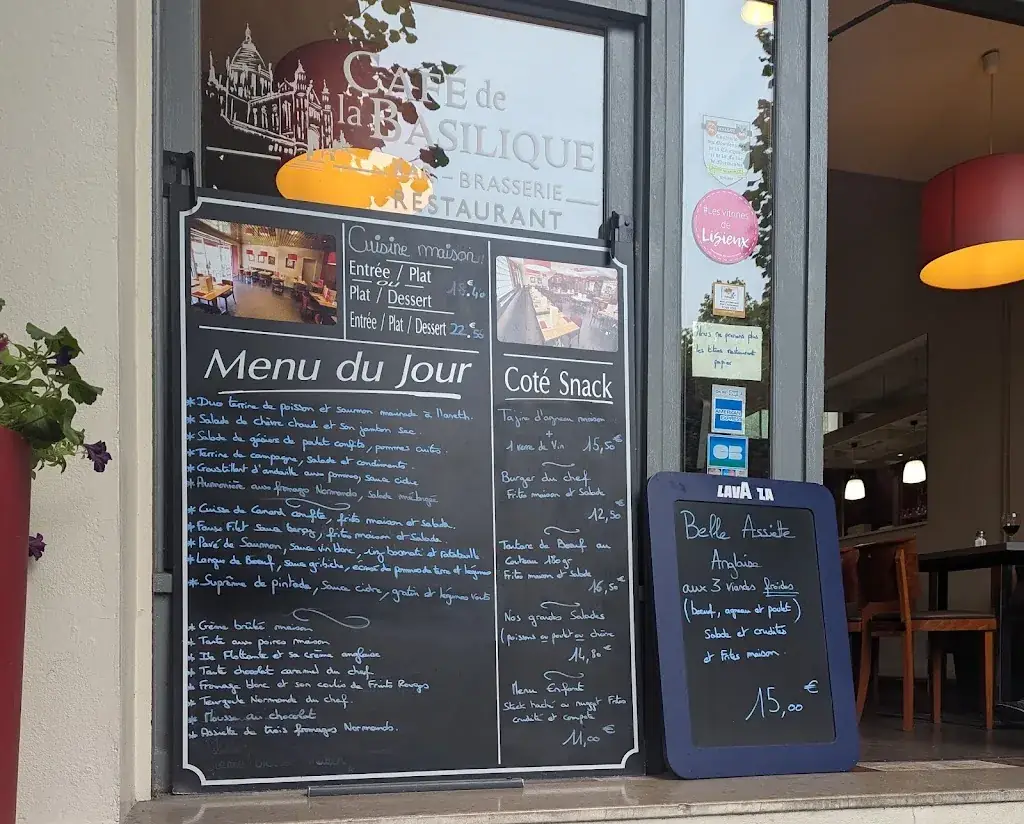 CAFÉ de
la BASILIQUE
BRASSERIE
RESTAURANT
Cuisine maison
Entrée / Plat
ou
Plat / Dessert
.40
Entrée / Plat / Dessert 22.
Menu du Jour
* Duo terrine de poisson et saumon marinade à l'aneth.
* Salade de chèvre chaud et son jambon sec.
* Salade de gésiers de poulet confits, pommes cuites.
* Terrine de campagne, salade et condiments.
* Croustillant d'andouille aux pommes, sauce cidre
* Aumonière aux fromages Normands, Salade mélangée
* Cuisse de Canard confite, frites maison et salade.
* Faux Filet sauce, frites maison et Salade.
* Pavé de Saumon, sauce vin blanc, riz basmati et ratatouille
* Langue de Boeuf, sauce gribiche, écrasé de pomme de terre et légumes
* Suprême de pintade, sauce cidre, gratin et légumes verts
* Crème brûlée maison
* Tarte aux poires maison
* Ile Flottante et sa crème anglaise
* Tarte chocolat caramel du chef
* Fromage blanc et son coulis de Fruits Rouges
* Teurgoule Normande du chef.
* Mousse au chocolat
* Assiette de trois fromages Normands.
Coté Snack
Tajine d'agneau maison
+
1 verre de Vin 15,50€
Burger du chef
Frites maison et Salade
€
12,50
Tartare de Boeuf au
Couteau 180gr
Frites maison et Salade
€
16,50
Nos grandes Salades
(poissons ou poulet ou chèvre
14,80 €
Menu Enfant
Steak haché ou nugget Frites
crudité et compote
11,00 €
#Les vitrines
de
Lisieux
Nous ne prenons plus
les titres restaurant
papier
AMERICAN
EXPRESS
CB
LAVAZZA
Belle Assiette
Anglaise
aux 3 viandes froides
(boeuf, agneau et poulet)
Salade et crudités
et Frites maison.
15,00 €